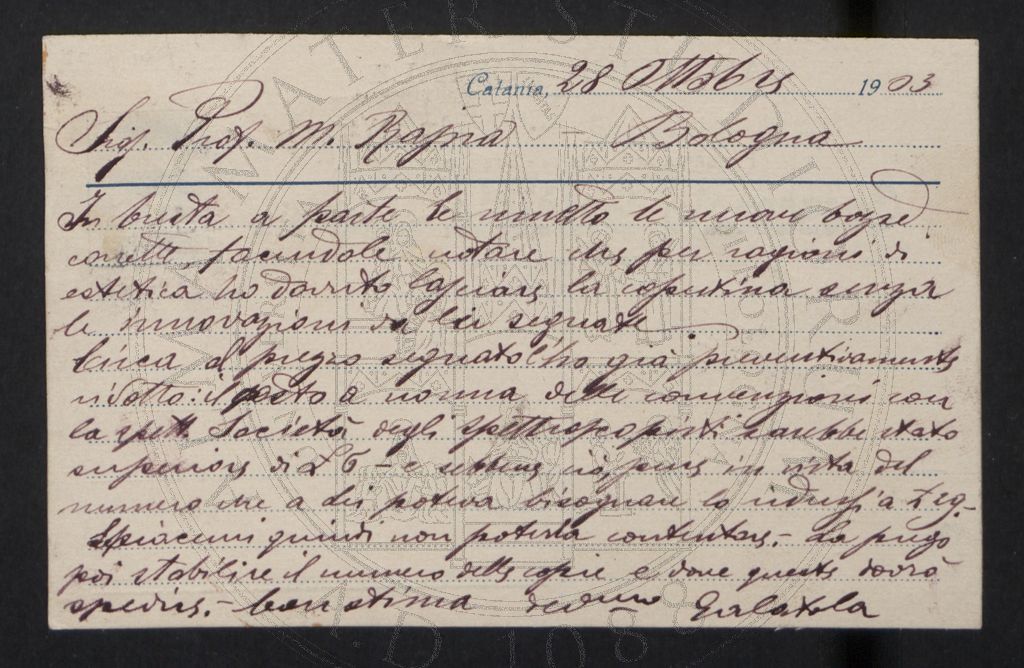 Catania, 28 Ottobre 1903
Sig. Prof. M. Rajna Bologna
In busta a parte le rimetto le nuove bozze
corrette, facendole notare che per ragioni di
estetica ho dovuto lasciare la copertina senza
le innovazioni da lei segnate
Circa al prezzo segnato l'ho già preventivamente
ridotto: il costo a norma delle convenzioni con
la spett Società degli spettroscopisti sarebbe stato
superiore di £ 6 - e sebbene pure in vista del
numero che a Lei poteva bisognare lo ridussi a
Spiacemi quindi non poterla contentare. - La prego
poi stabilire il numero delle copie e dove queste dovrò
spedire. - Con stima devmo Galatola